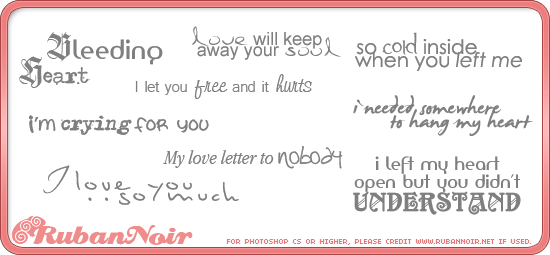 Bleeding
Heart
love will keep
away your soul
so cold inside
when you left me
I let you free and it hurts
i needed somewhere
to hang my heart
i'm crying for you
My love letter to nobody
i left my heart
open but you didn't
UNDERSTAND
I love you
..so much
RubanNoir
FOR PHOTOSHOP CS OR HIGHER, PLEASE CREDIT WWW.RUBANNOIR.NET IF USED.